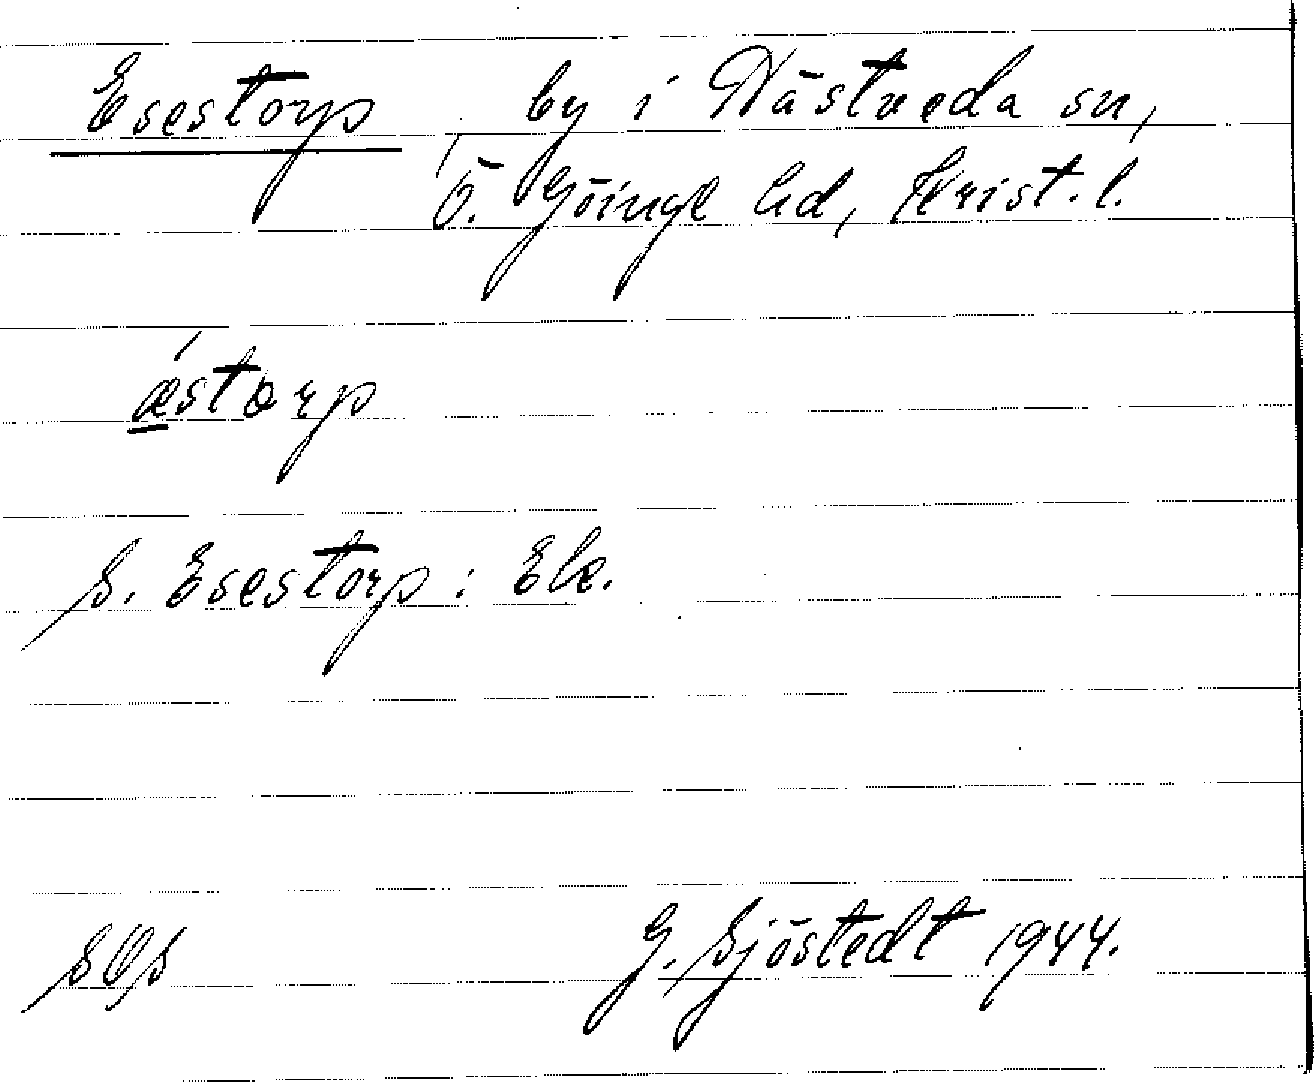 Esestorp, by i Nästveda sn,
Ö. Göinge hd, Krist. l.
ǽstorp
S. Esestorp: Ek.
SOS G. Sjöstedt 1944.